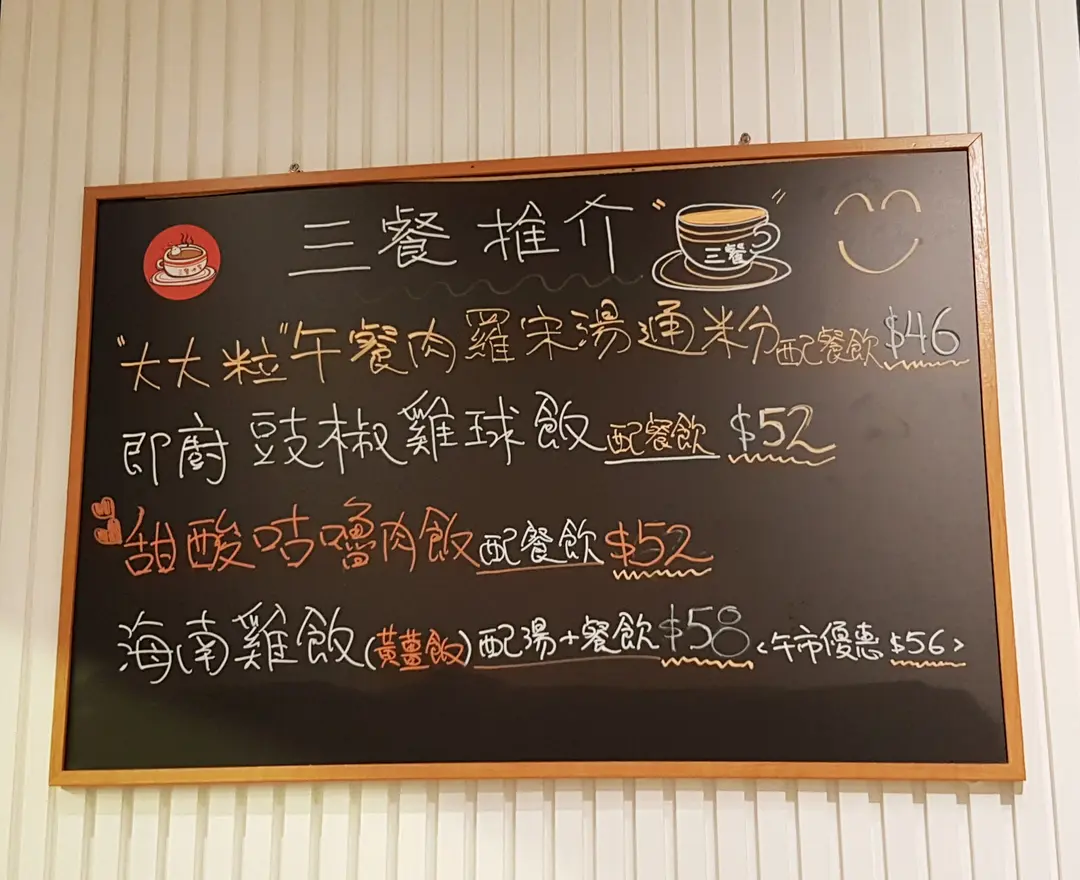 三餐推介
三餐
"大大粒"午餐肉羅宋湯通粉配餐飲$46
即廚豉椒雞球飯配餐飲$52
甜酸咕嚕肉飯配餐飲$52
海南雞飯(黃薑飯)配湯+餐飲$58<午市優惠$56>